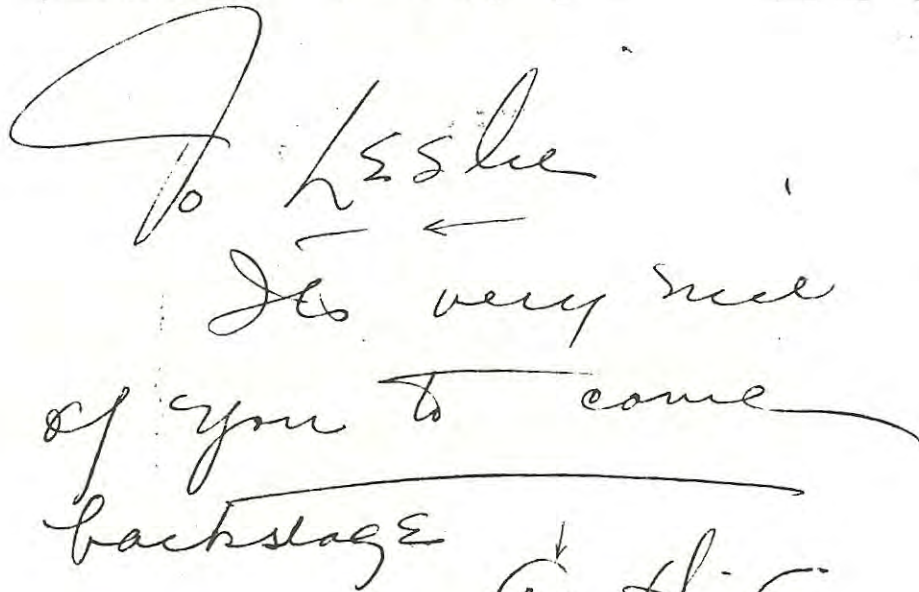 To Leslie
Its very nice
of you to come
backstage